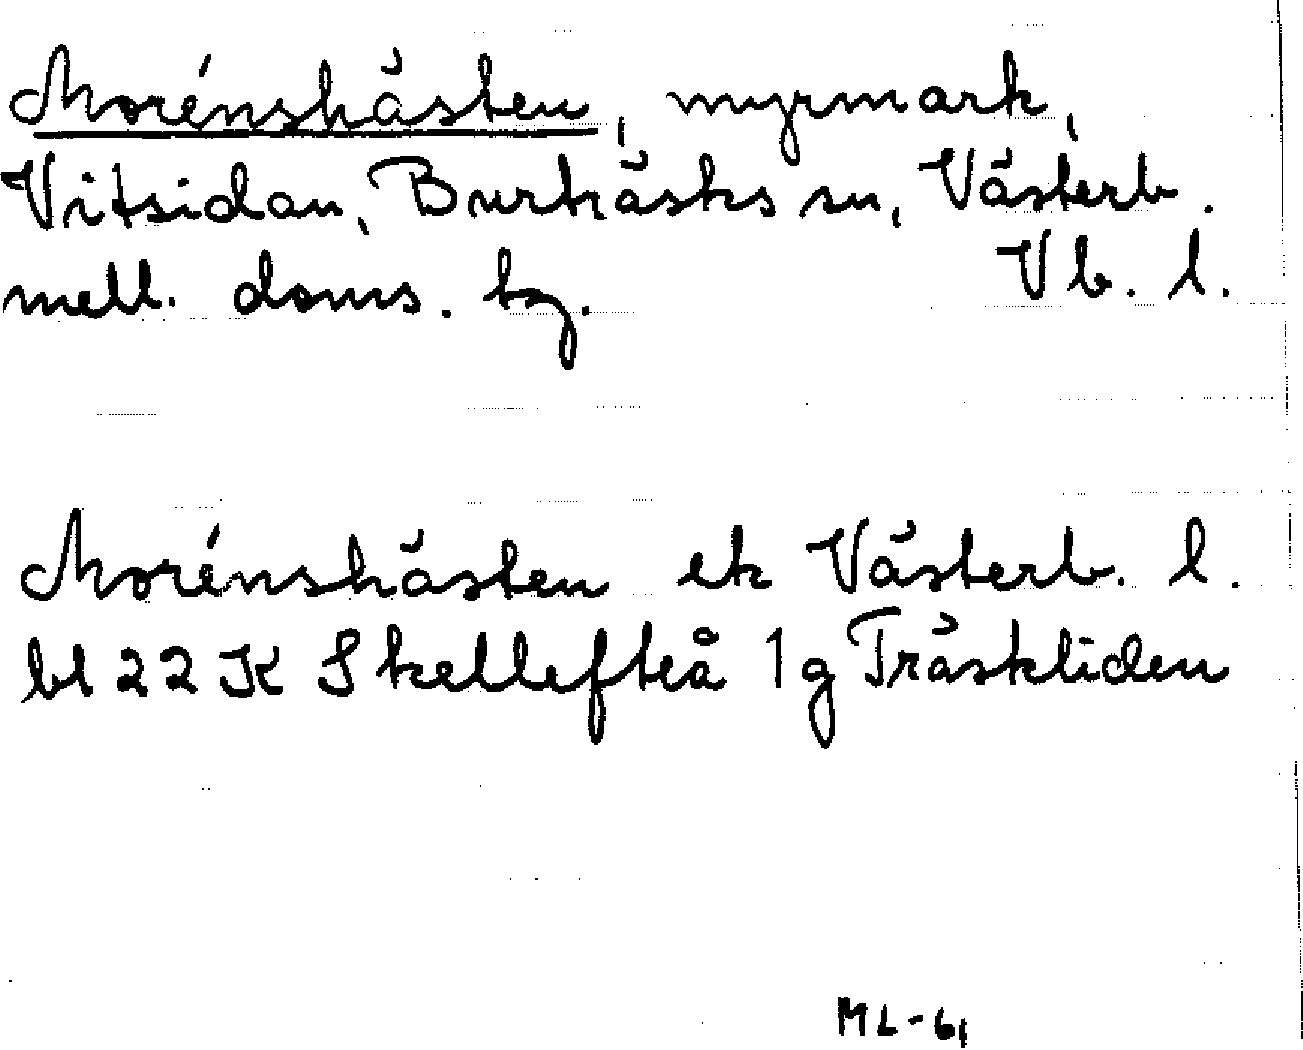 Morénshästen, myrmark,
Vitsidan, Burträsks sn, Västerb.
mell. doms. tg. Vb. l.
Morénshästen ek Västerb. l.
bl 22 K Skellefteå 1g Träskliden
ML-61